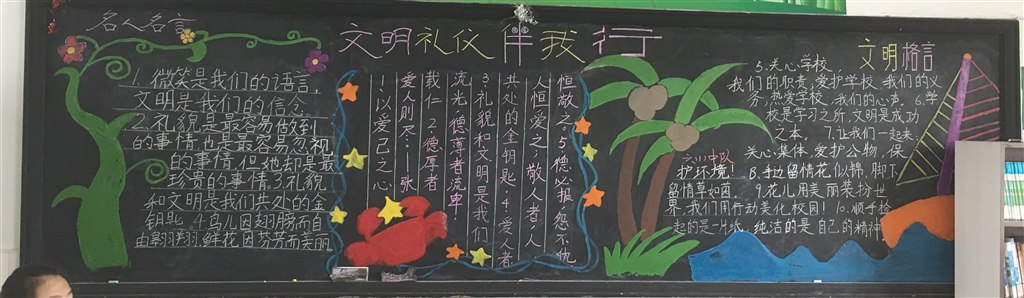 名人名言
文明礼仪伴我行
文明格言
1.微笑是我们的语言,
文明是我们的信念
2.礼貌是最容易做到
的事情,也是最容易忽视
的事情,但她却是最
珍贵的事情.3.礼貌
和文明是我们共处的金
钥匙.4.鸟儿因翅膀而自
由翱翔,鲜花因芬芳而美丽
恒敬之.5.德必报,怨不忧
人恒爱之 敬人者,人
共处的金钥匙 4.爱人者
3.礼貌和文明是我们
流光 德尊者流卑!
我仁 2.德厚者
爱人则尽……张
1.以爱己之心
5.关心学校,
我们的职责,爱护学校,我们的义
务,热爱学校,我们的心声.6.学
校是学习之所,文明是成功
之本. 7.让我们一起来
关心集体,爱护公物,保
护环境! 8.手边留情花似锦,脚下
留情草如茵 9.花儿用美丽装扮世
界,我们用行动美化校园! 10.顺手捡
起的是一片纸,纯洁的是自己的精神